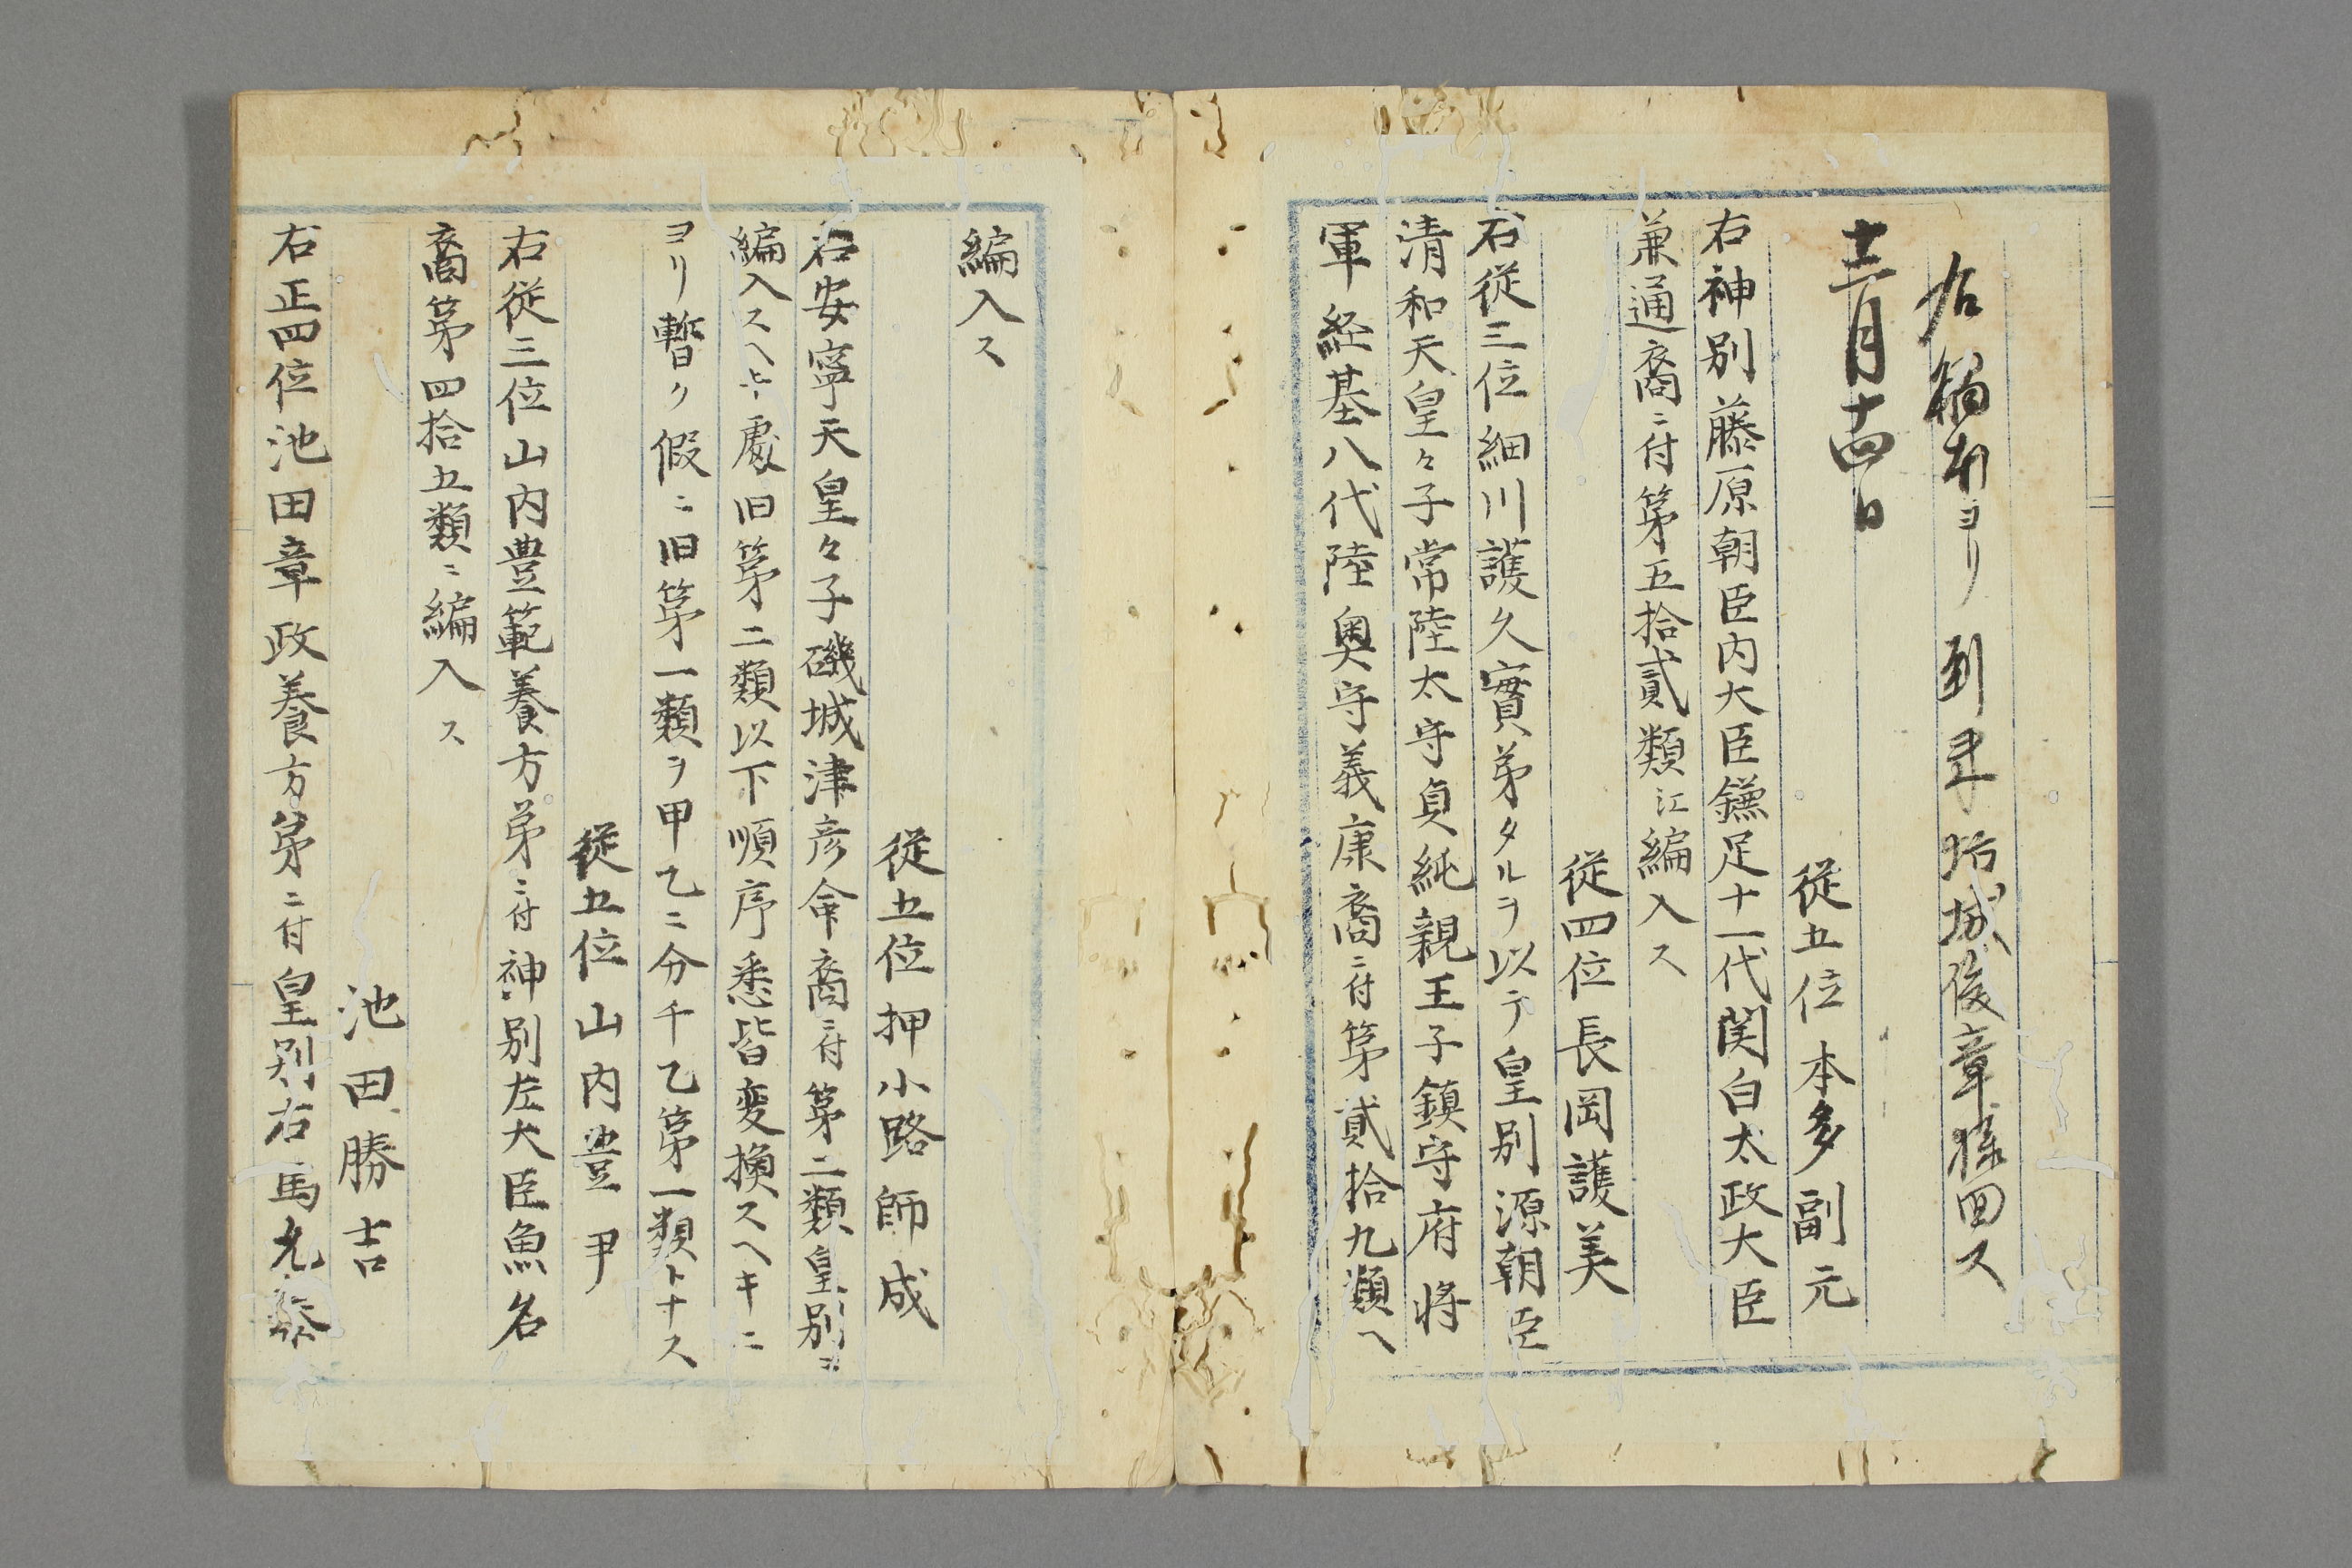 右編柏ヨリ到来坊城俊章様回ス
十二月十四日
従五位本多副元
右神別藤原朝臣内大臣鎌足十一代関白太政大臣
兼通裔ニ付第五拾貳類江編入ス
従四位長岡護美
右従三位細川護久實弟タルヲ以テ皇別源朝臣
清和天皇々子常陸太守貞純親王子鎮守府将
軍経基八代陸奥守義康裔ニ付第貳拾九類ヘ
編入ス
従五位押小路師成
右安寧天皇々子磯城津彦命裔ニ付第二類皇別ニ
編入スヘキ處旧第二類以下順序悉皆変換スヘキニ
ヨリ暫ク假ニ旧第一類ヲ甲乙ニ分チ乙第一類トナス
従五位山内豊尹
右従三位山内豊範養方弟ニ付神別左大臣魚名
裔第四拾五類ニ編入ス
池田勝吉
右正四位池田章政養方弟ニ付皇別右馬允泰